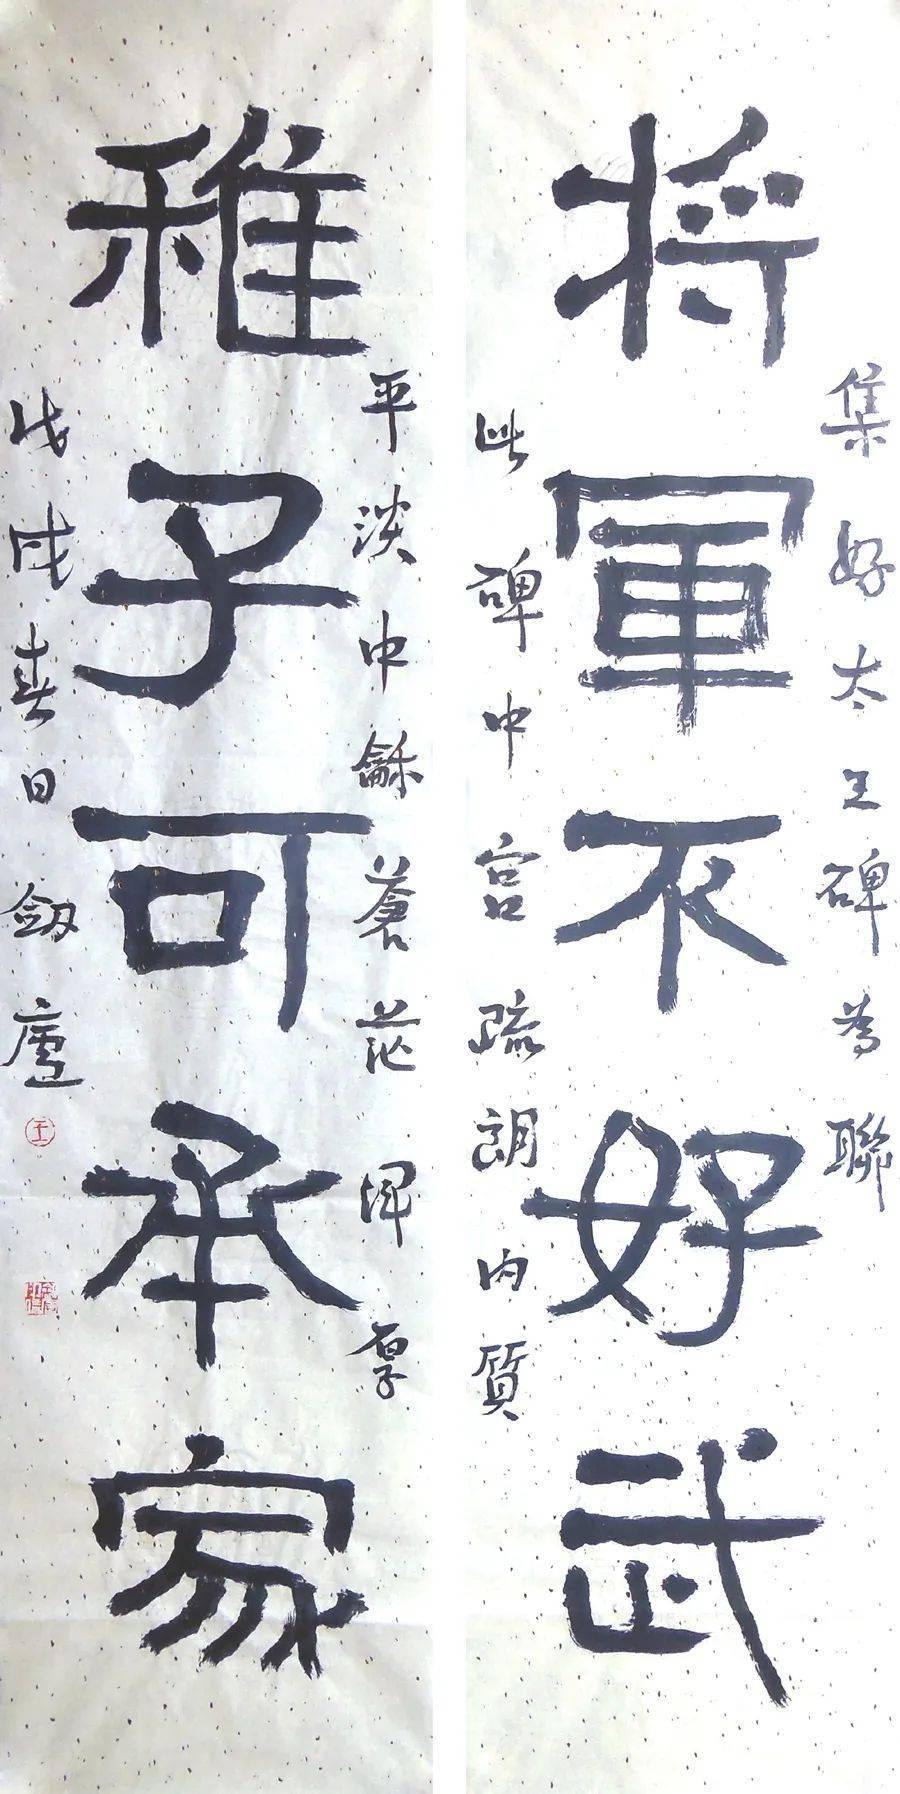 集好太王碑为聯
将軍不好武
此碑中宫疏朗内質
平淡中龢蒼茫渾厚
稚子可承家
戊戌春日劔廬